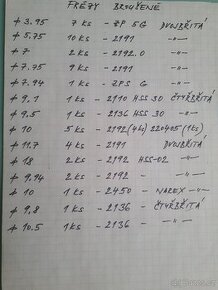 FRÉZY BROUŠENÉ
ϕ 3.95 7 ks - ZPS G DVOJBŘITÁ
ϕ 5.75 10 ks - 2191 -"-
ϕ 7 2 ks - 2192.0 -"-
ϕ 7.75 9 ks - 2191 -"-
ϕ 7.94 1 ks - ZPS G -"-
ϕ 9,1 1 ks - 2110 HSS 30 ČTYŘBŘITÁ
ϕ 9,5 1 ks - 2136 HSS 30 -"-
ϕ 10 5 ks - 2192 (4ks) 220405 (1ks)
ϕ 11.7 4 ks - 2191 DVOJBŘITÁ
ϕ 18 2 ks - 2192 HSS-02 -"-
ϕ 9,94 2 ks - 2192 - -"-
ϕ 10 1 ks - 2450 - NAREX -"-
ϕ 9,8 1 ks - 2136 - ČTYŘBŘITÁ
ϕ 10.5 1 ks - 2136 - -"-